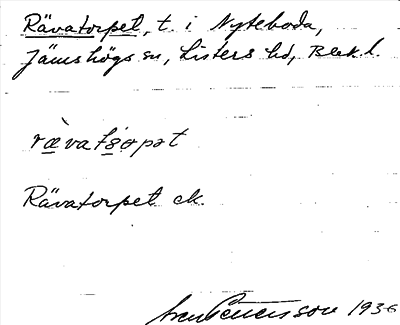 Rävatorpet, t. i Nyteboda,
Jämshögs sn, Listers hd, Blek. l.
rævatsopət
Rävatorpet ek.
Sven Benson 1936